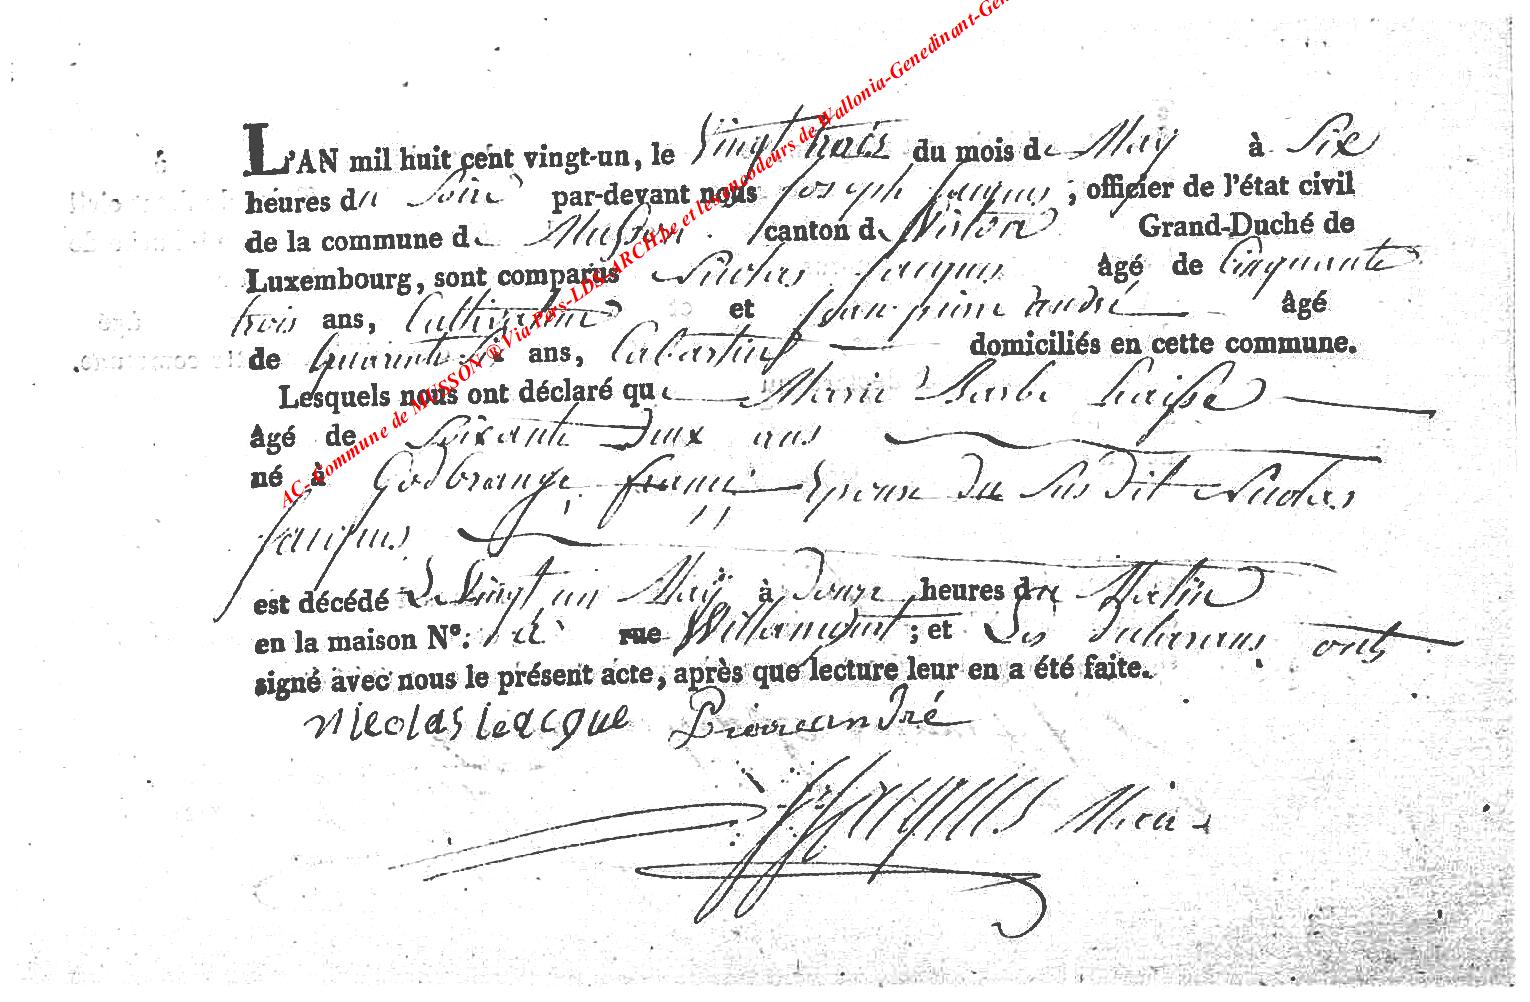 AC- Commune de MUSSON ® Via Pers-LDS-ARCH.be et les encodeurs de Wallonia-Genedinant-Gen
L'AN mil huit cent vingt-un, le Vingt trois du mois de May à Six
heures du Soir par-devant nous Joseph Jacques, officier de l'état civil
de la commune de Musson canton de Virton Grand-Duché de
Luxembourg, sont comparus Nicolas Jacques âgé de Cinquante
trois ans, et Jean pierre andré âgé
de quarante ans, domiciliés en cette commune.
Lesquels nous ont déclaré que Marie Barbe
âgé de Soixante Deux ans
né à Godbrange france Epouse du Sus dit Nicolas
Jacques
est décédé Le Vingt un May à Douze heures du Matin
en la maison N°. rue Willancourt; et Les Declarans onts
signé avec nous le présent acte, après que lecture leur en a été faite.
nicolas Jeacque Pierre andré
Jacques